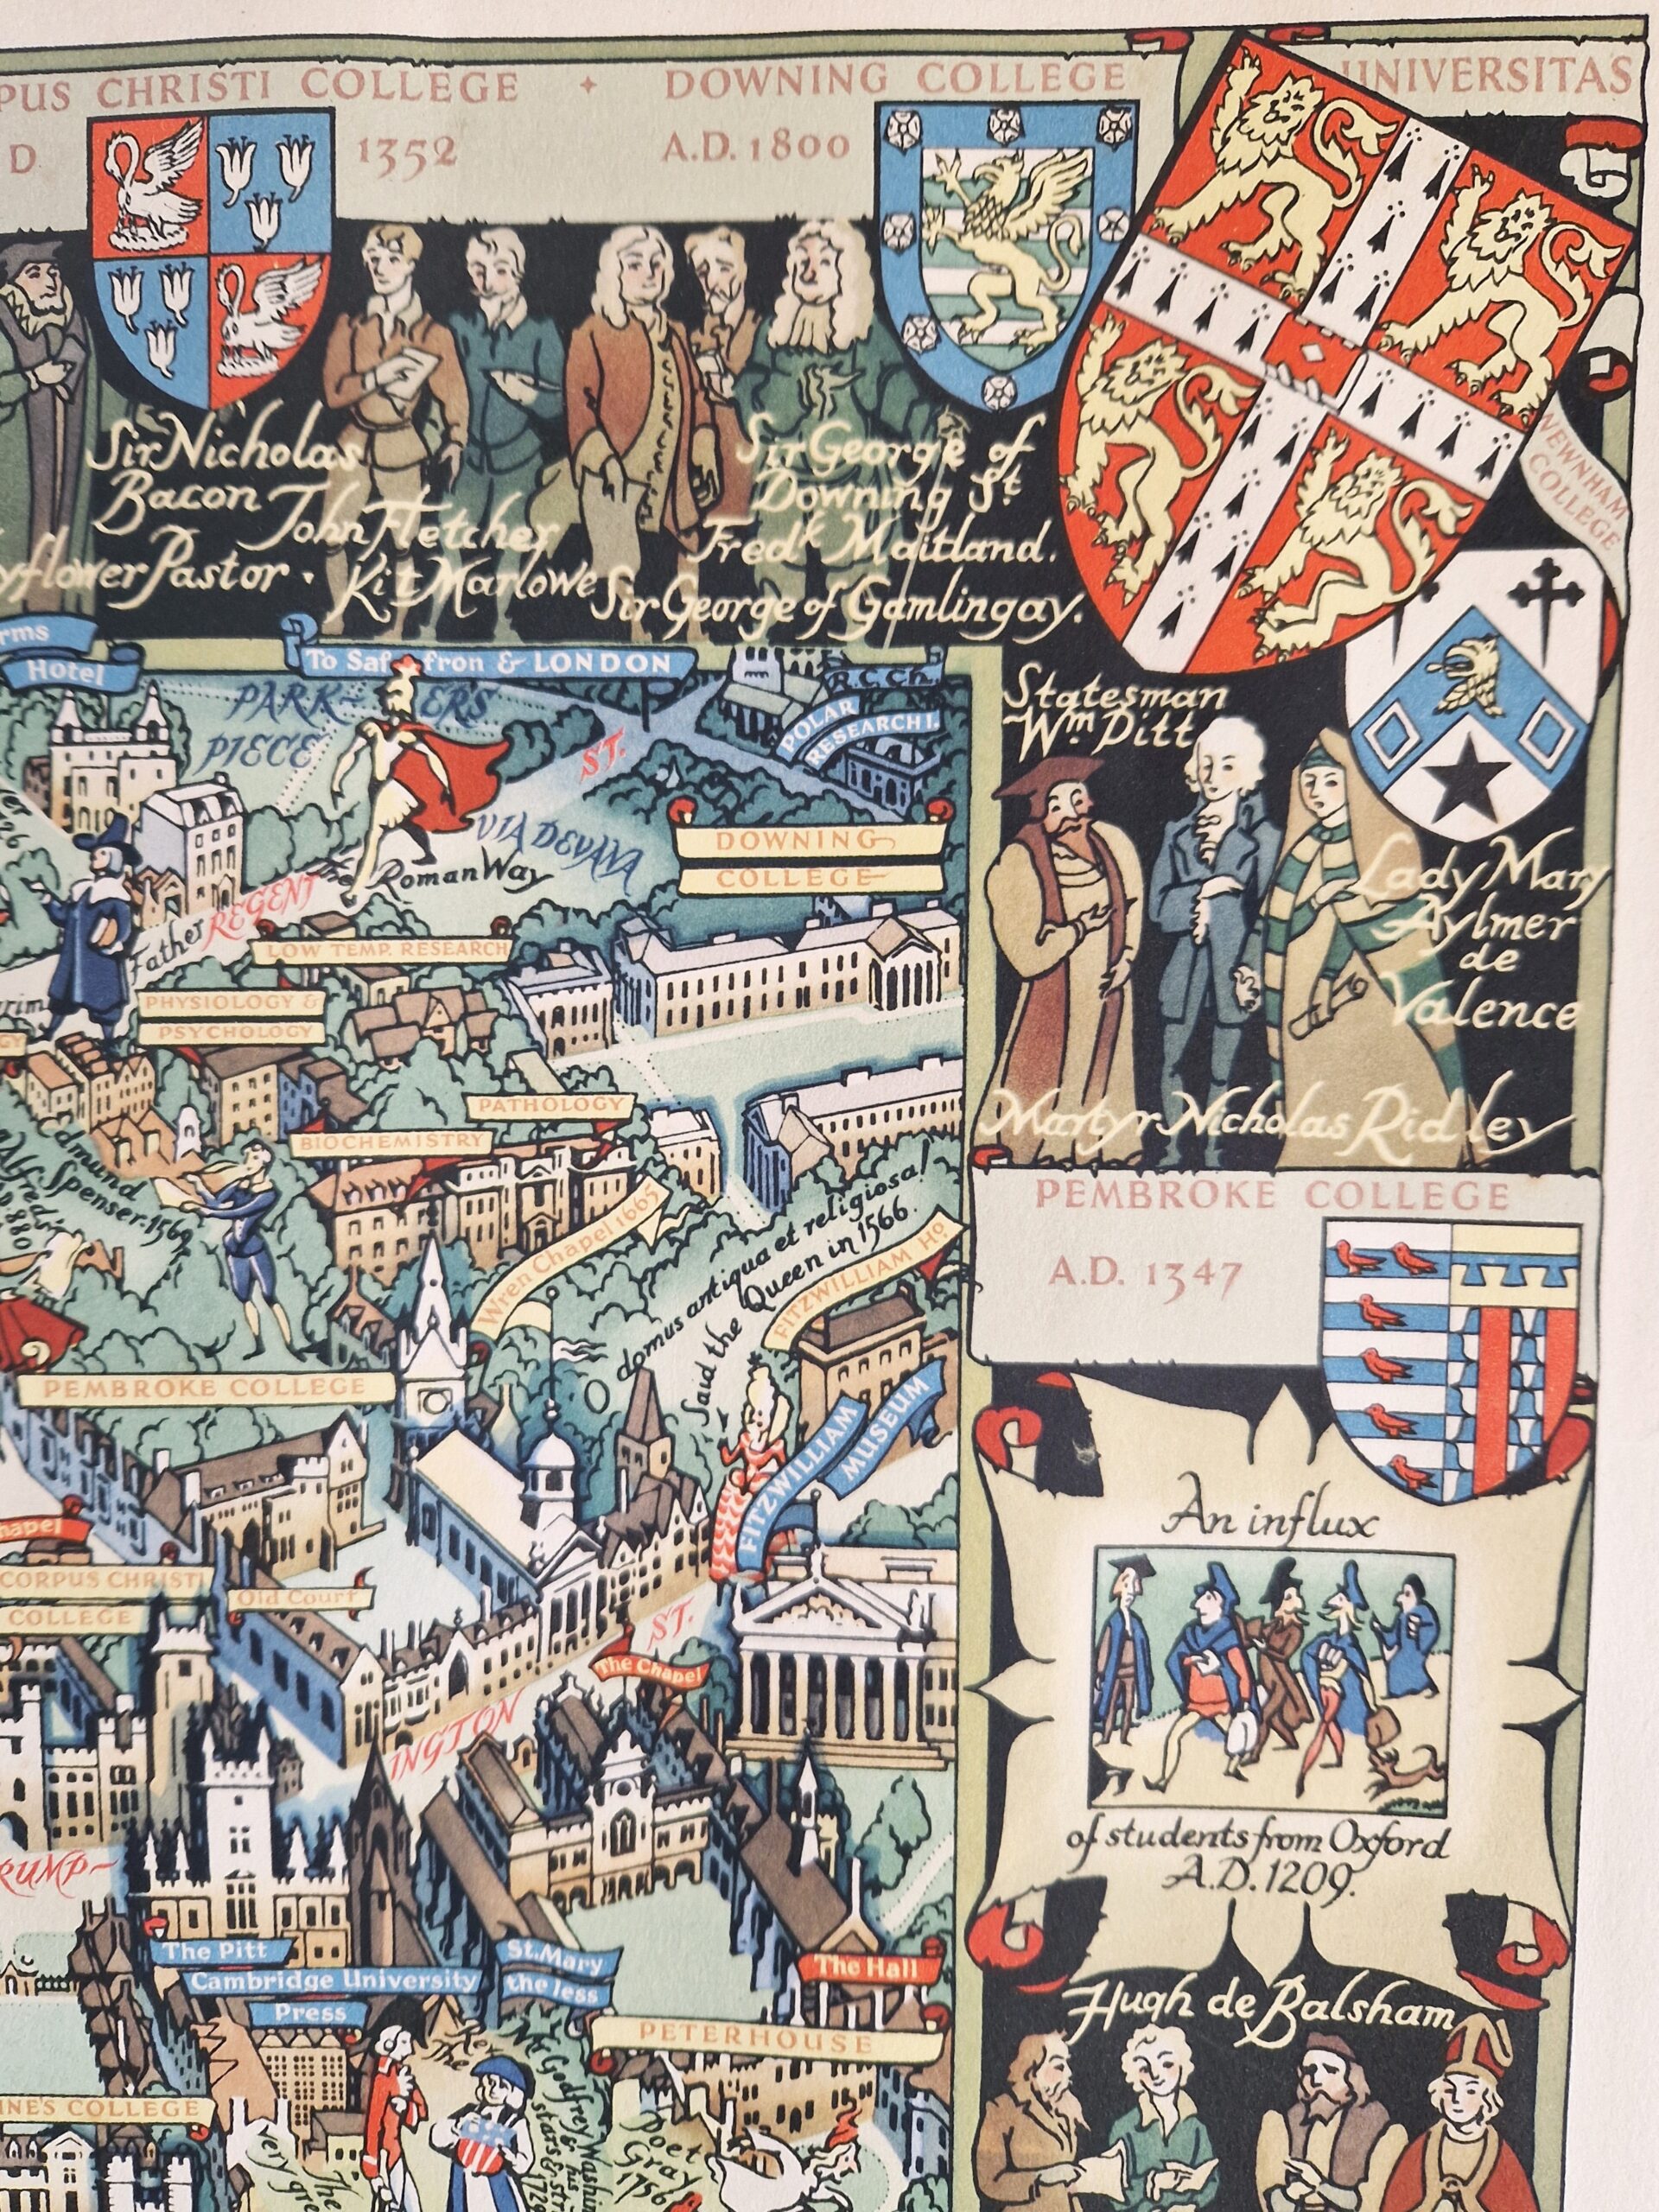 PUS CHRISTI COLLEGE + DOWNING COLLEGE
UNIVERSITAS
D. 1352 A.D. 1800
NEWNHAM
COLLEGE
Sir Nicholas
Bacon
John Fletcher
yflower Pastor .
Kit Marlowe
Sir George of
Downing St
Fredk Maitland.
Sir George of Gamlingay.
rms
Hotel
To Saffron & LONDON
PARKERS
PIECE
R.C.Ch.
POLAR
RESEARCH I.
ST.
VIA DEVANA
The Roman Way
REGENT
Father
DOWNING
COLLEGE
LOW TEMP. RESEARCH
PHYSIOLOGY &
PSYCHOLOGY
PATHOLOGY
BIOCHEMISTRY
Edmund
Spenser. 1569
Alfred
880
Wren Chapel 1665
domus antiqua et religiosa!
Said the Queen in 1566.
FITZWILLIAM HO.
PEMBROKE COLLEGE
FITZWILLIAM
MUSEUM
hapel
CORPUS CHRISTI
COLLEGE
Old Court
ST.
The Chapel
INGTON
RUMP-
The Pitt
Cambridge University
Press
St. Mary
the less
The Hall
PETERHOUSE
INE'S COLLEGE
Rev.
The
Mr Godfrey Washin
& his
stars & str
172
very gre
The
Poet
Gray
1756
Statesman
Wm. Pitt
Lady Mary
Aylmer
de
Valence
Martyr Nicholas Ridley
PEMBROKE COLLEGE
A.D. 1347
An influx
of students from Oxford
A.D. 1209.
Hugh de Balsham